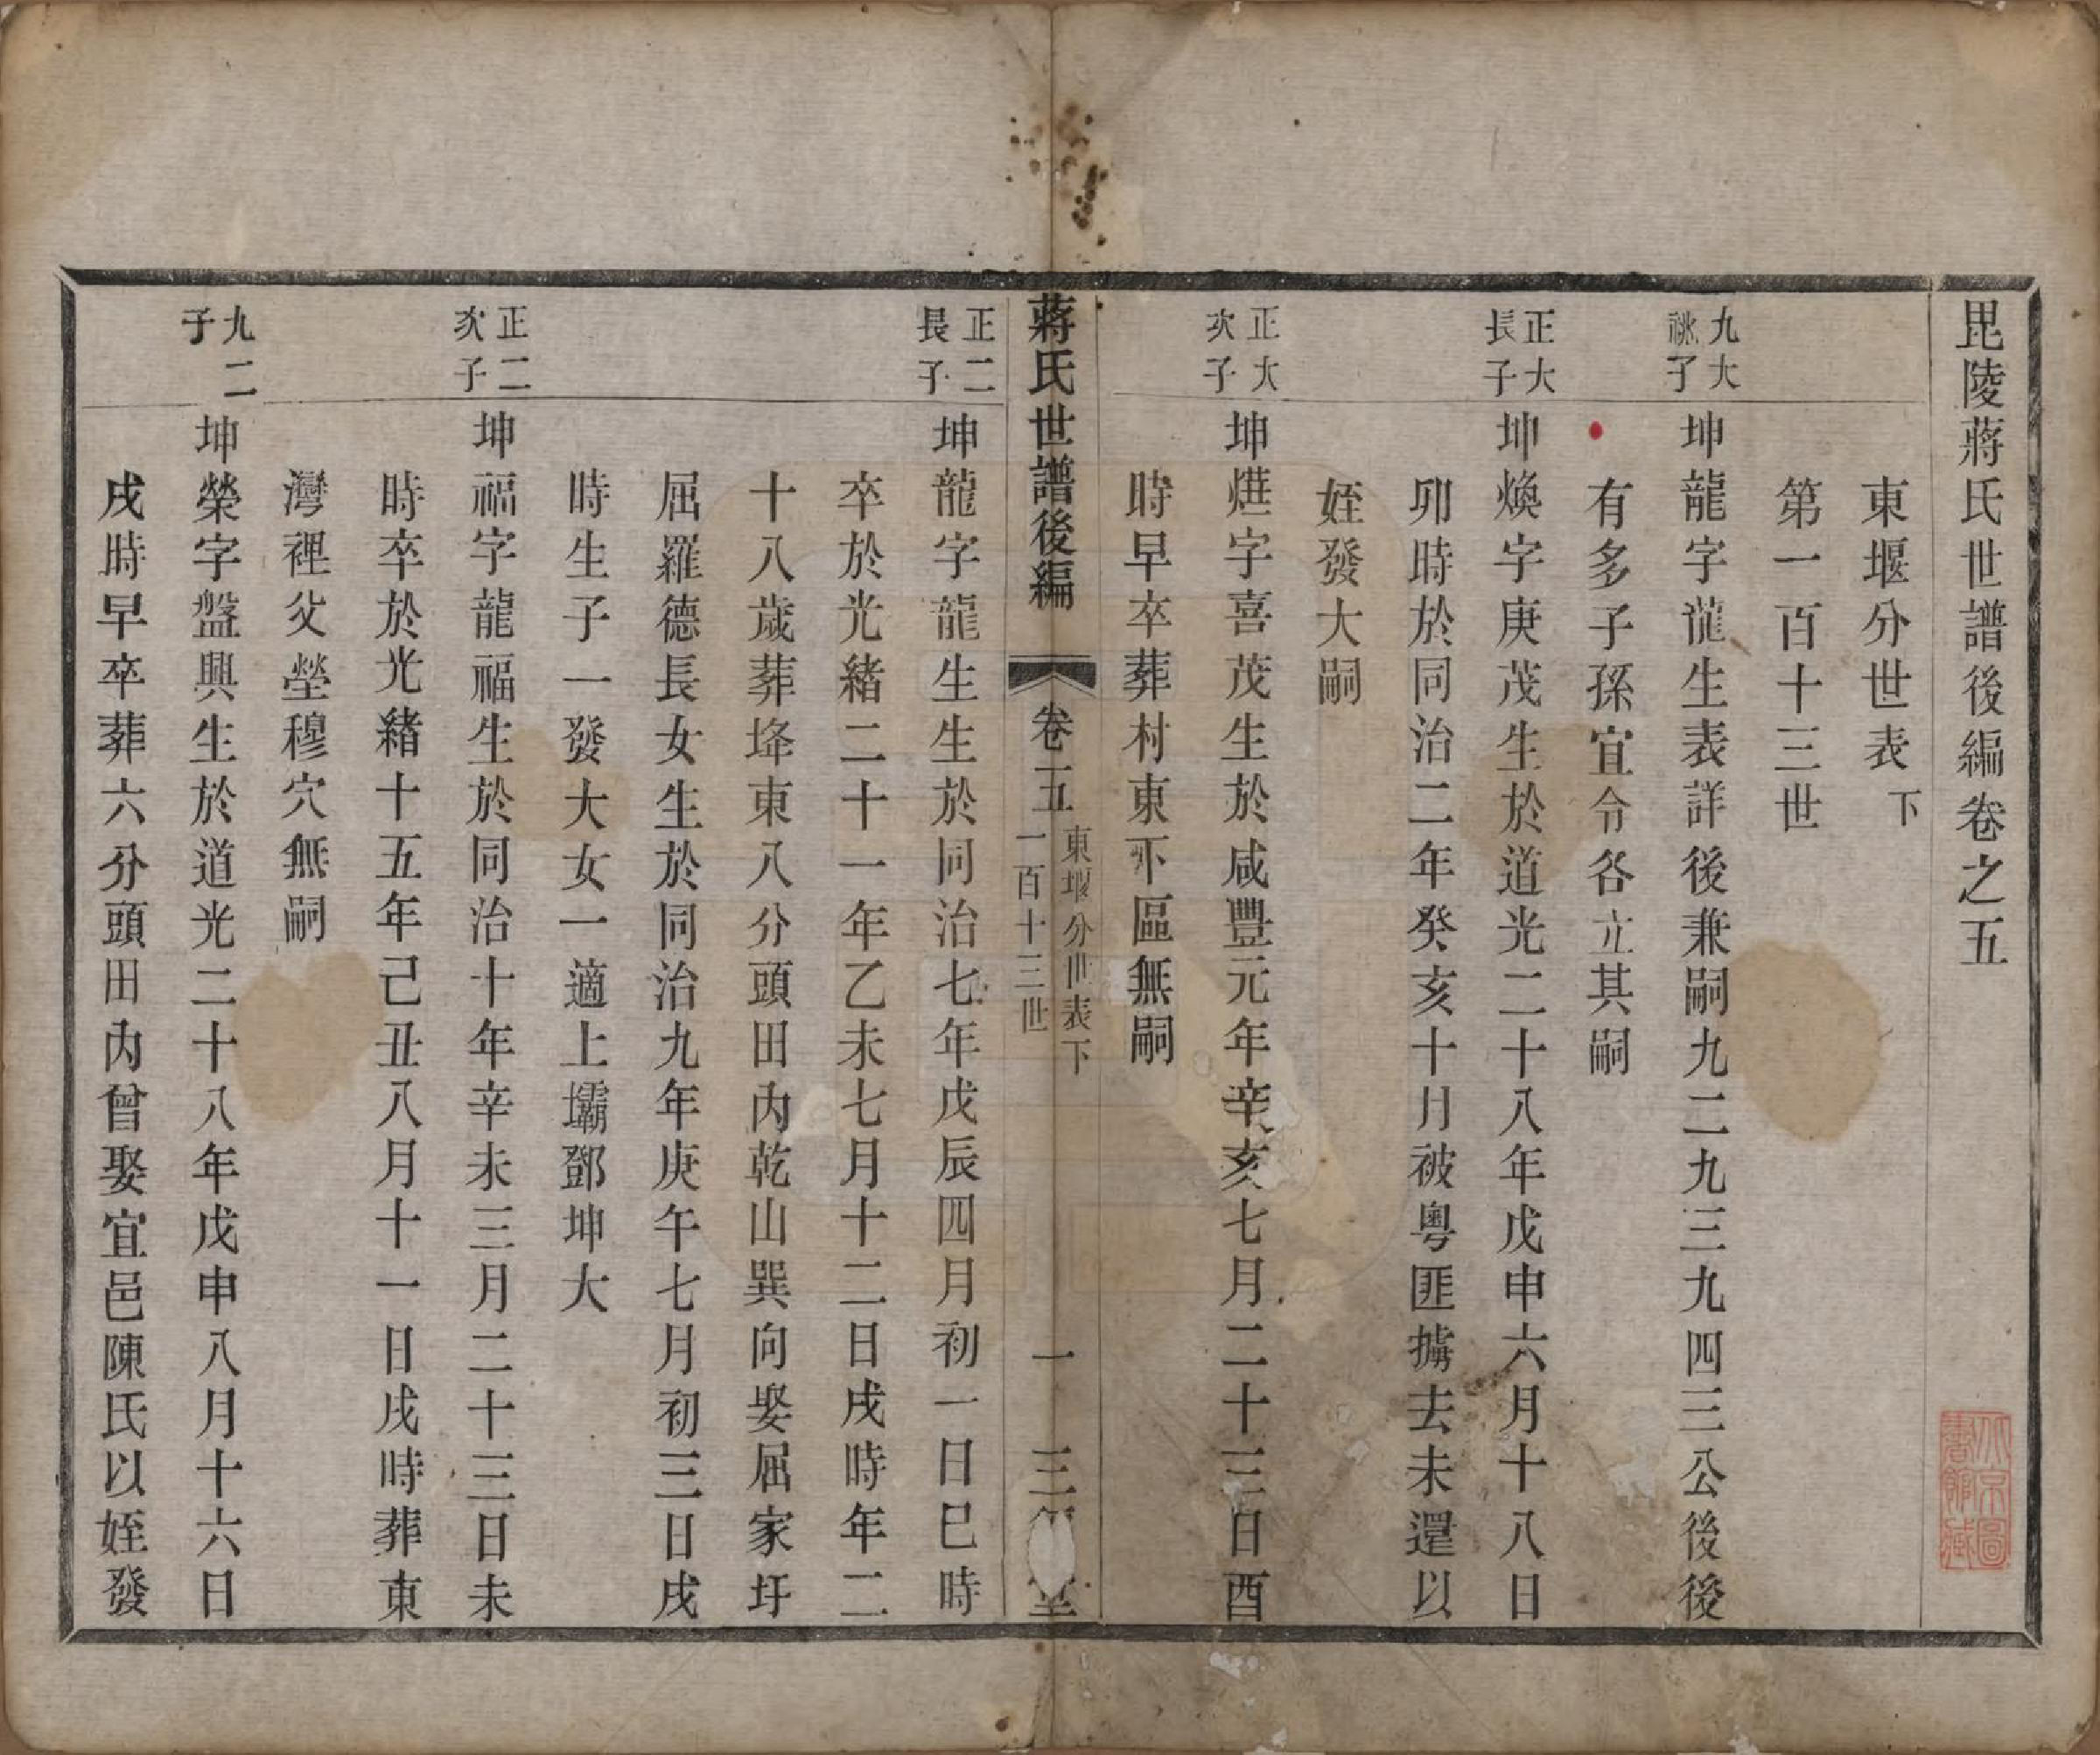 毘陵蔣氏世譜後編卷之五
東堰分世表下
第一百十三世
九大
祧子
坤龍字龍生表詳後兼嗣九二九三九四三公後後
有多子孫宜令各立其嗣
正大
長子
坤煥字庚茂生於道光二十八年戊申六月十八日
卯時於同治二年癸亥十月被粵匪擄去未還以
姪發大嗣
正大
次子
坤㷸字喜茂生於咸豐元年辛亥七月二十三日酉
時早卒葬村東下區無嗣
蔣氏世譜後編
卷五
東堰分世表下
一百十三世
一
三
堂
正二
長子
坤龍字龍生生於同治七年戊辰四月初一日巳時
卒於光緒二十一年乙未七月十二日戌時年二
十八歲葬垰東八分頭田內乾山巽向娶屈家圩
屈羅德長女生於同治九年庚午七月初三日戌
時生子一發大女一適上壩鄧坤大
正二
次子
坤福字龍福生於同治十年辛未三月二十三日未
時卒於光緒十五年己丑八月十一日戌時葬東
灣裡父塋穆穴無嗣
九二
子
坤榮字盤興生於道光二十八年戊申八月十六日
戌時早卒葬六分頭田內曾娶宜邑陳氏以姪發